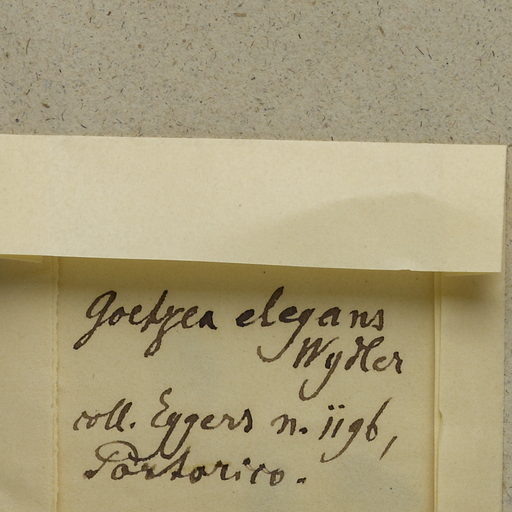 Goetzea elegans
Wydler
coll. Eggers n. 1196,
Portorico.